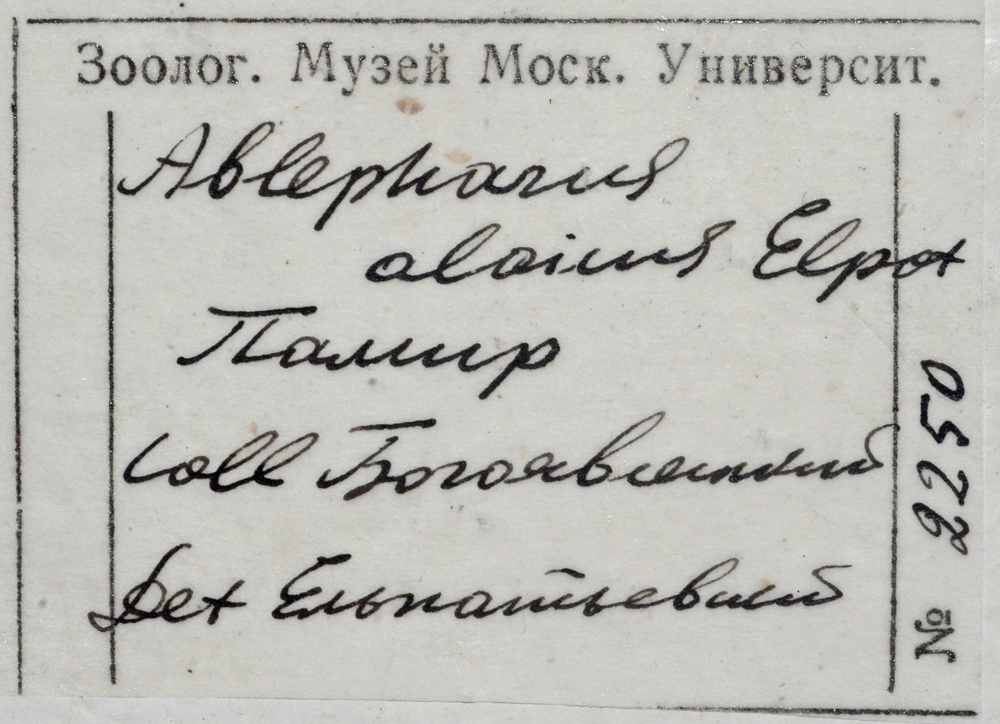 Зоолог. Музей Моск. Университ.
Ablepharus
alaicus Elpat
Памир
Coll Богоявленский
Det Ельпатьевский
№ 2250